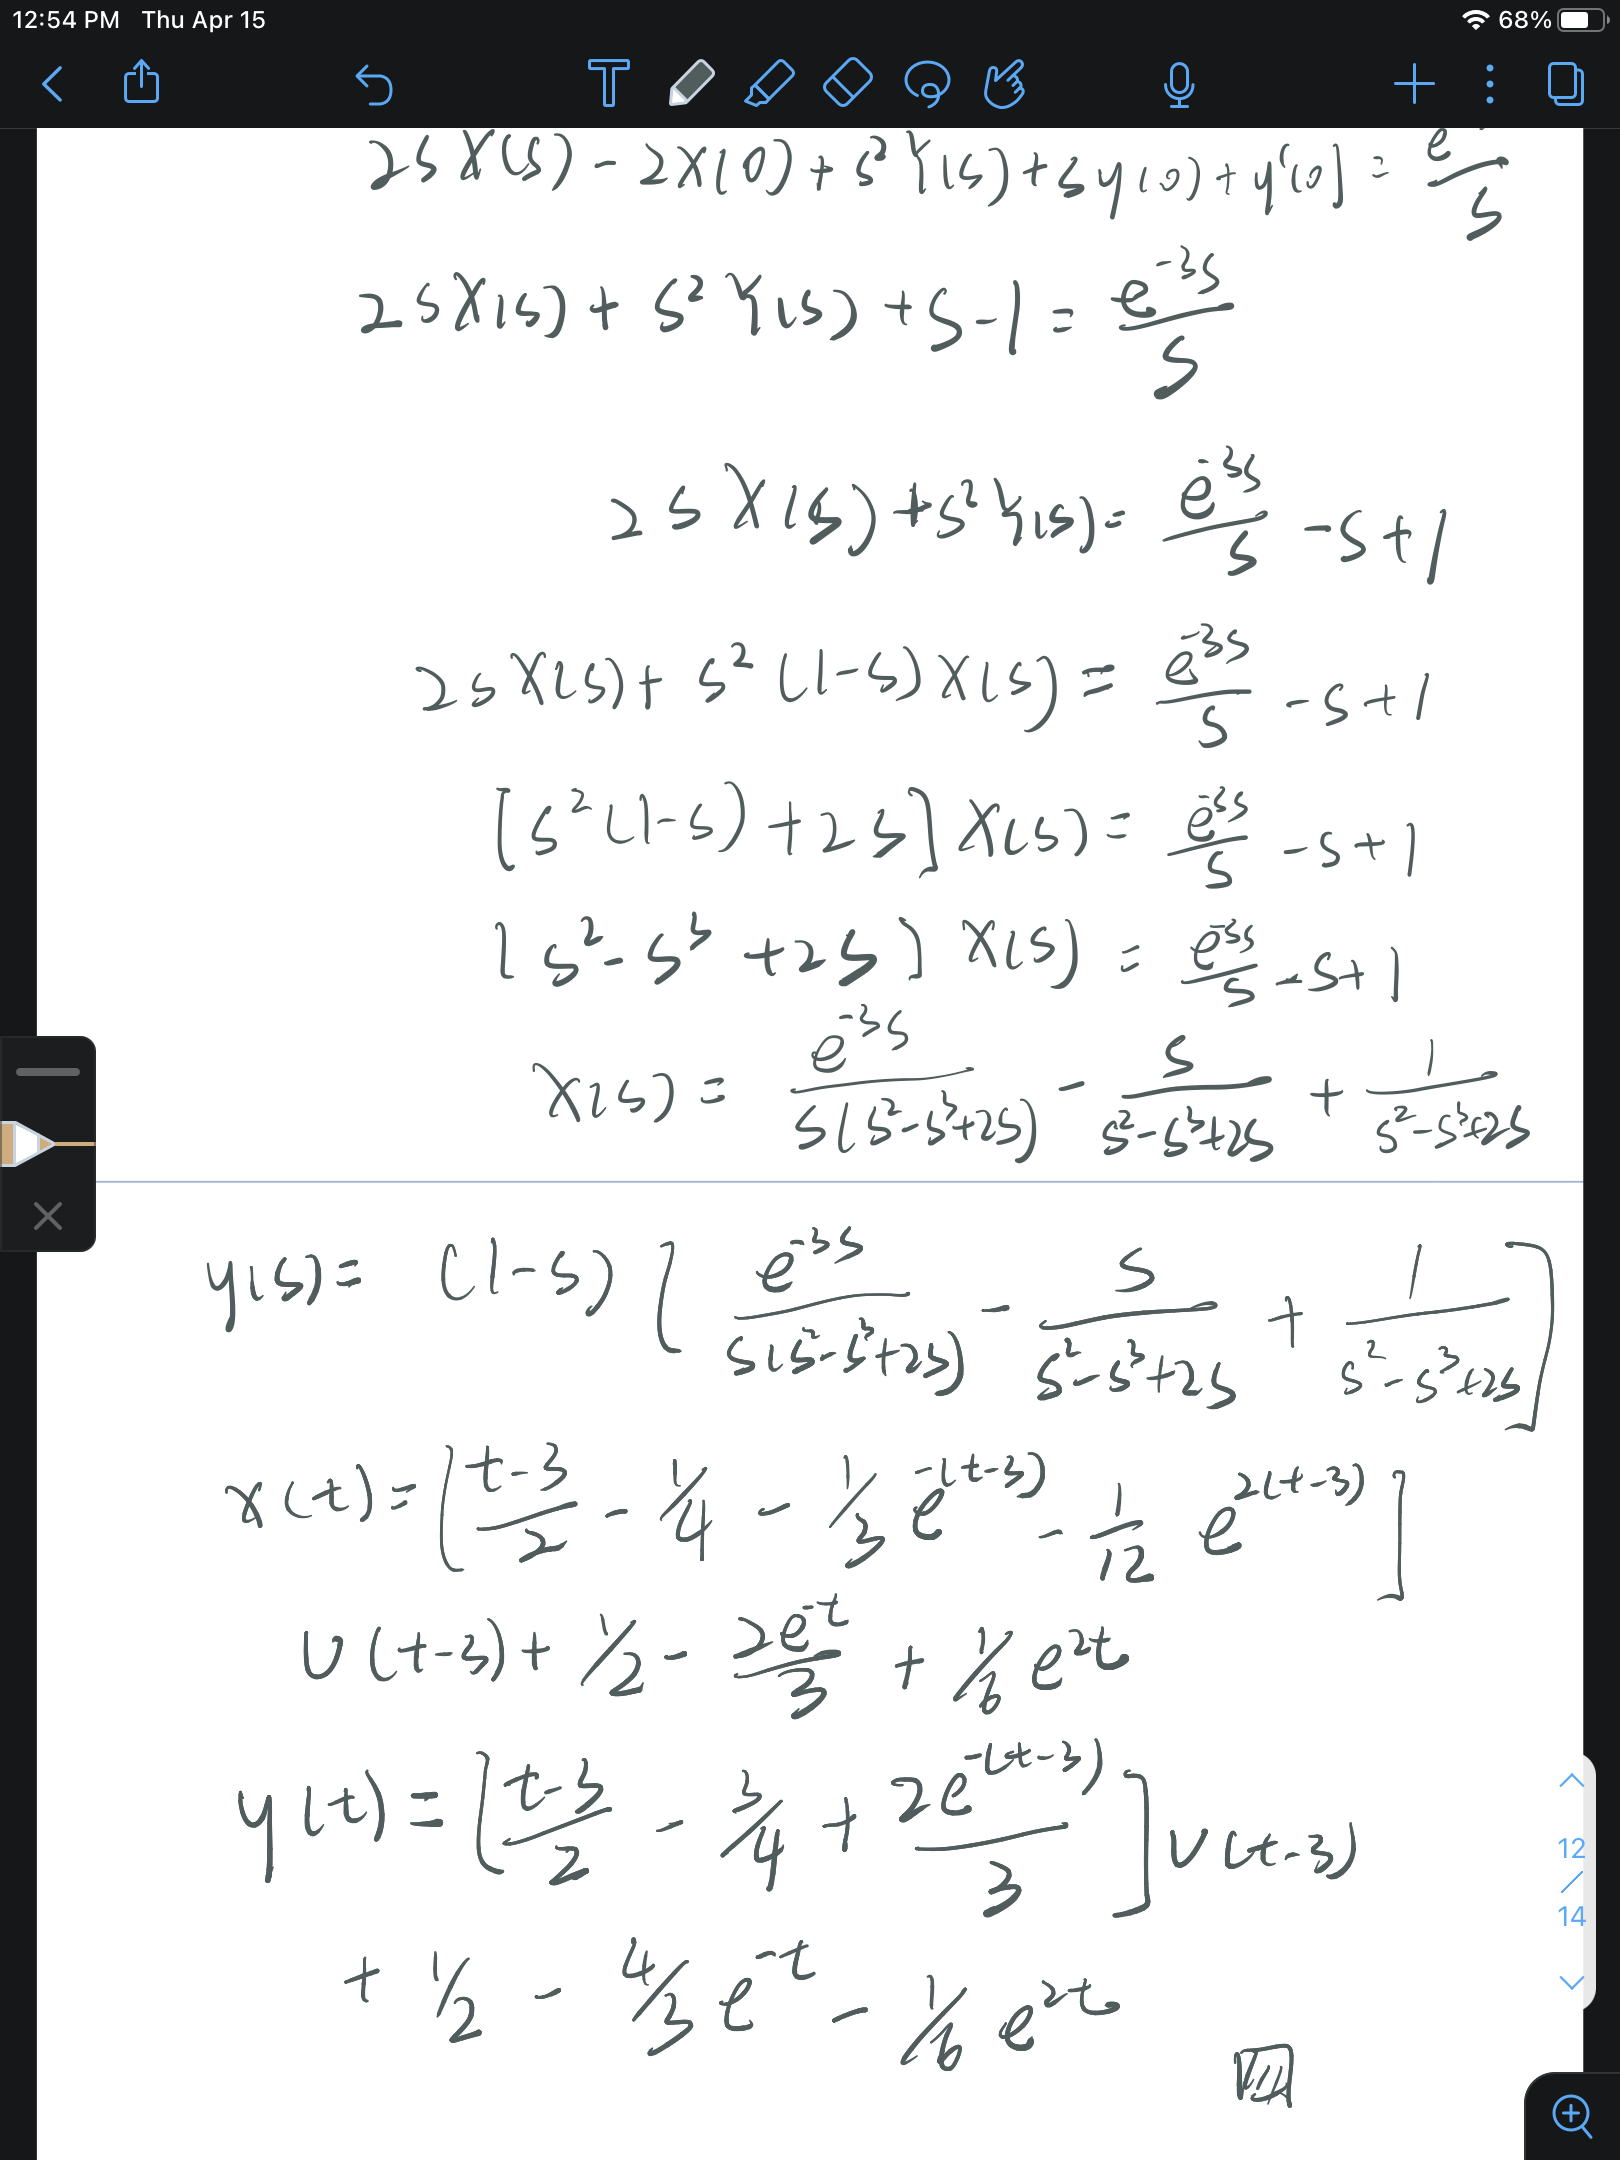 12:54 PM Thu Apr 15 68%
T
2sX(s) - 2X(0) + s² Y(s) + sy(0) + y'(0] = e / s
2sX(s) + s² Y(s) + s - 1 = e^-3s / s
2sX(s) + s² Y(s) = e^-3s / s - s + 1
2sX(s) + s² (1-s) X(s) = e^-3s / s - s + 1
[s²(1-s) + 2s] X(s) = e^-3s / s - s + 1
[s² - s³ + 2s] X(s) = e^-3s / s - s + 1
X(s) = e^-3s / s(s²-s³+2s) - s / s²-s³+2s + 1 / s²-s³+2s
y(s) = (1-s) [e^-3s / s(s²-s³+2s) - s / s²-s³+2s + 1 / s²-s³+2s]
x(t) = [t-3 / 2 - 1/4 - 1/3 e^-(t-3) - 1/12 e^2(t-3)]
U(t-3) + 1/2 - 2e^-t / 3 + 1/6 e^2t
y(t) = [t-3 / 2 - 3/4 + 2e^-(t-3) / 3] U(t-3)
+ 1/2 - 4/3 e^-t - 1/6 e^2t
12
/
14